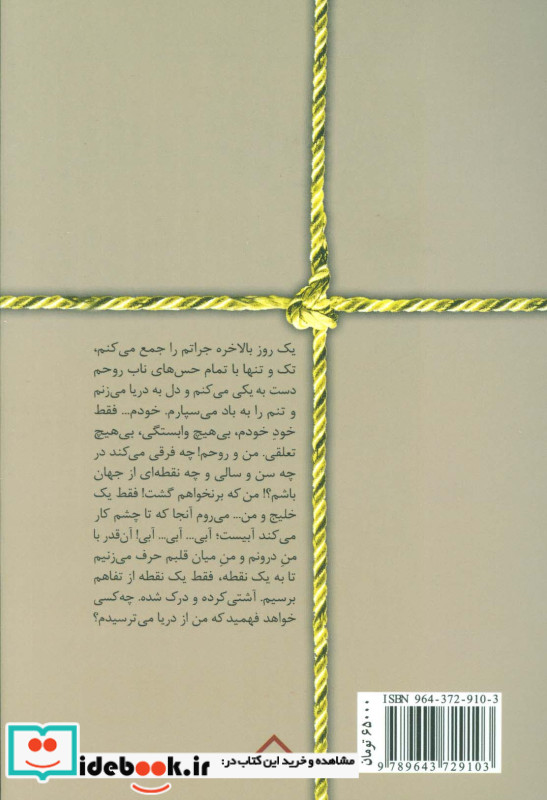 یک روز بالاخره جراتم را جمع می‌کنم،
تک و تنها با تمام حس‌های ناب روحم
دست به یکی می‌کنم و دل به دریا می‌زنم
و تنم را به باد می‌سپارم. خودم... فقط
خودِ خودم، بی‌هیچ وابستگی، بی‌هیچ
تعلقی. من و روحم! چه فرقی می‌کند در
چه سن و سالی و چه نقطه‌ای از جهان
باشم؟! من که برنخواهم گشت! فقط یک
خلیج و من... می‌روم آنجا که تا چشم کار
می‌کند آبیست؛ آبی... آبی... آبی! آن‌قدر با
منِ درونم و منِ میان قلبم حرف می‌زنیم
تا به یک نقطه، فقط یک نقطه از تفاهم
برسیم. آشتی‌کرده و درک شده. چه‌کسی
خواهد فهمید که من از دریا می‌ترسیدم؟
ISBN 964-372-910-3
9 789643 729103
۶۵۰۰۰ تومان
مشاهده و خرید این کتاب در:
idebook.ir